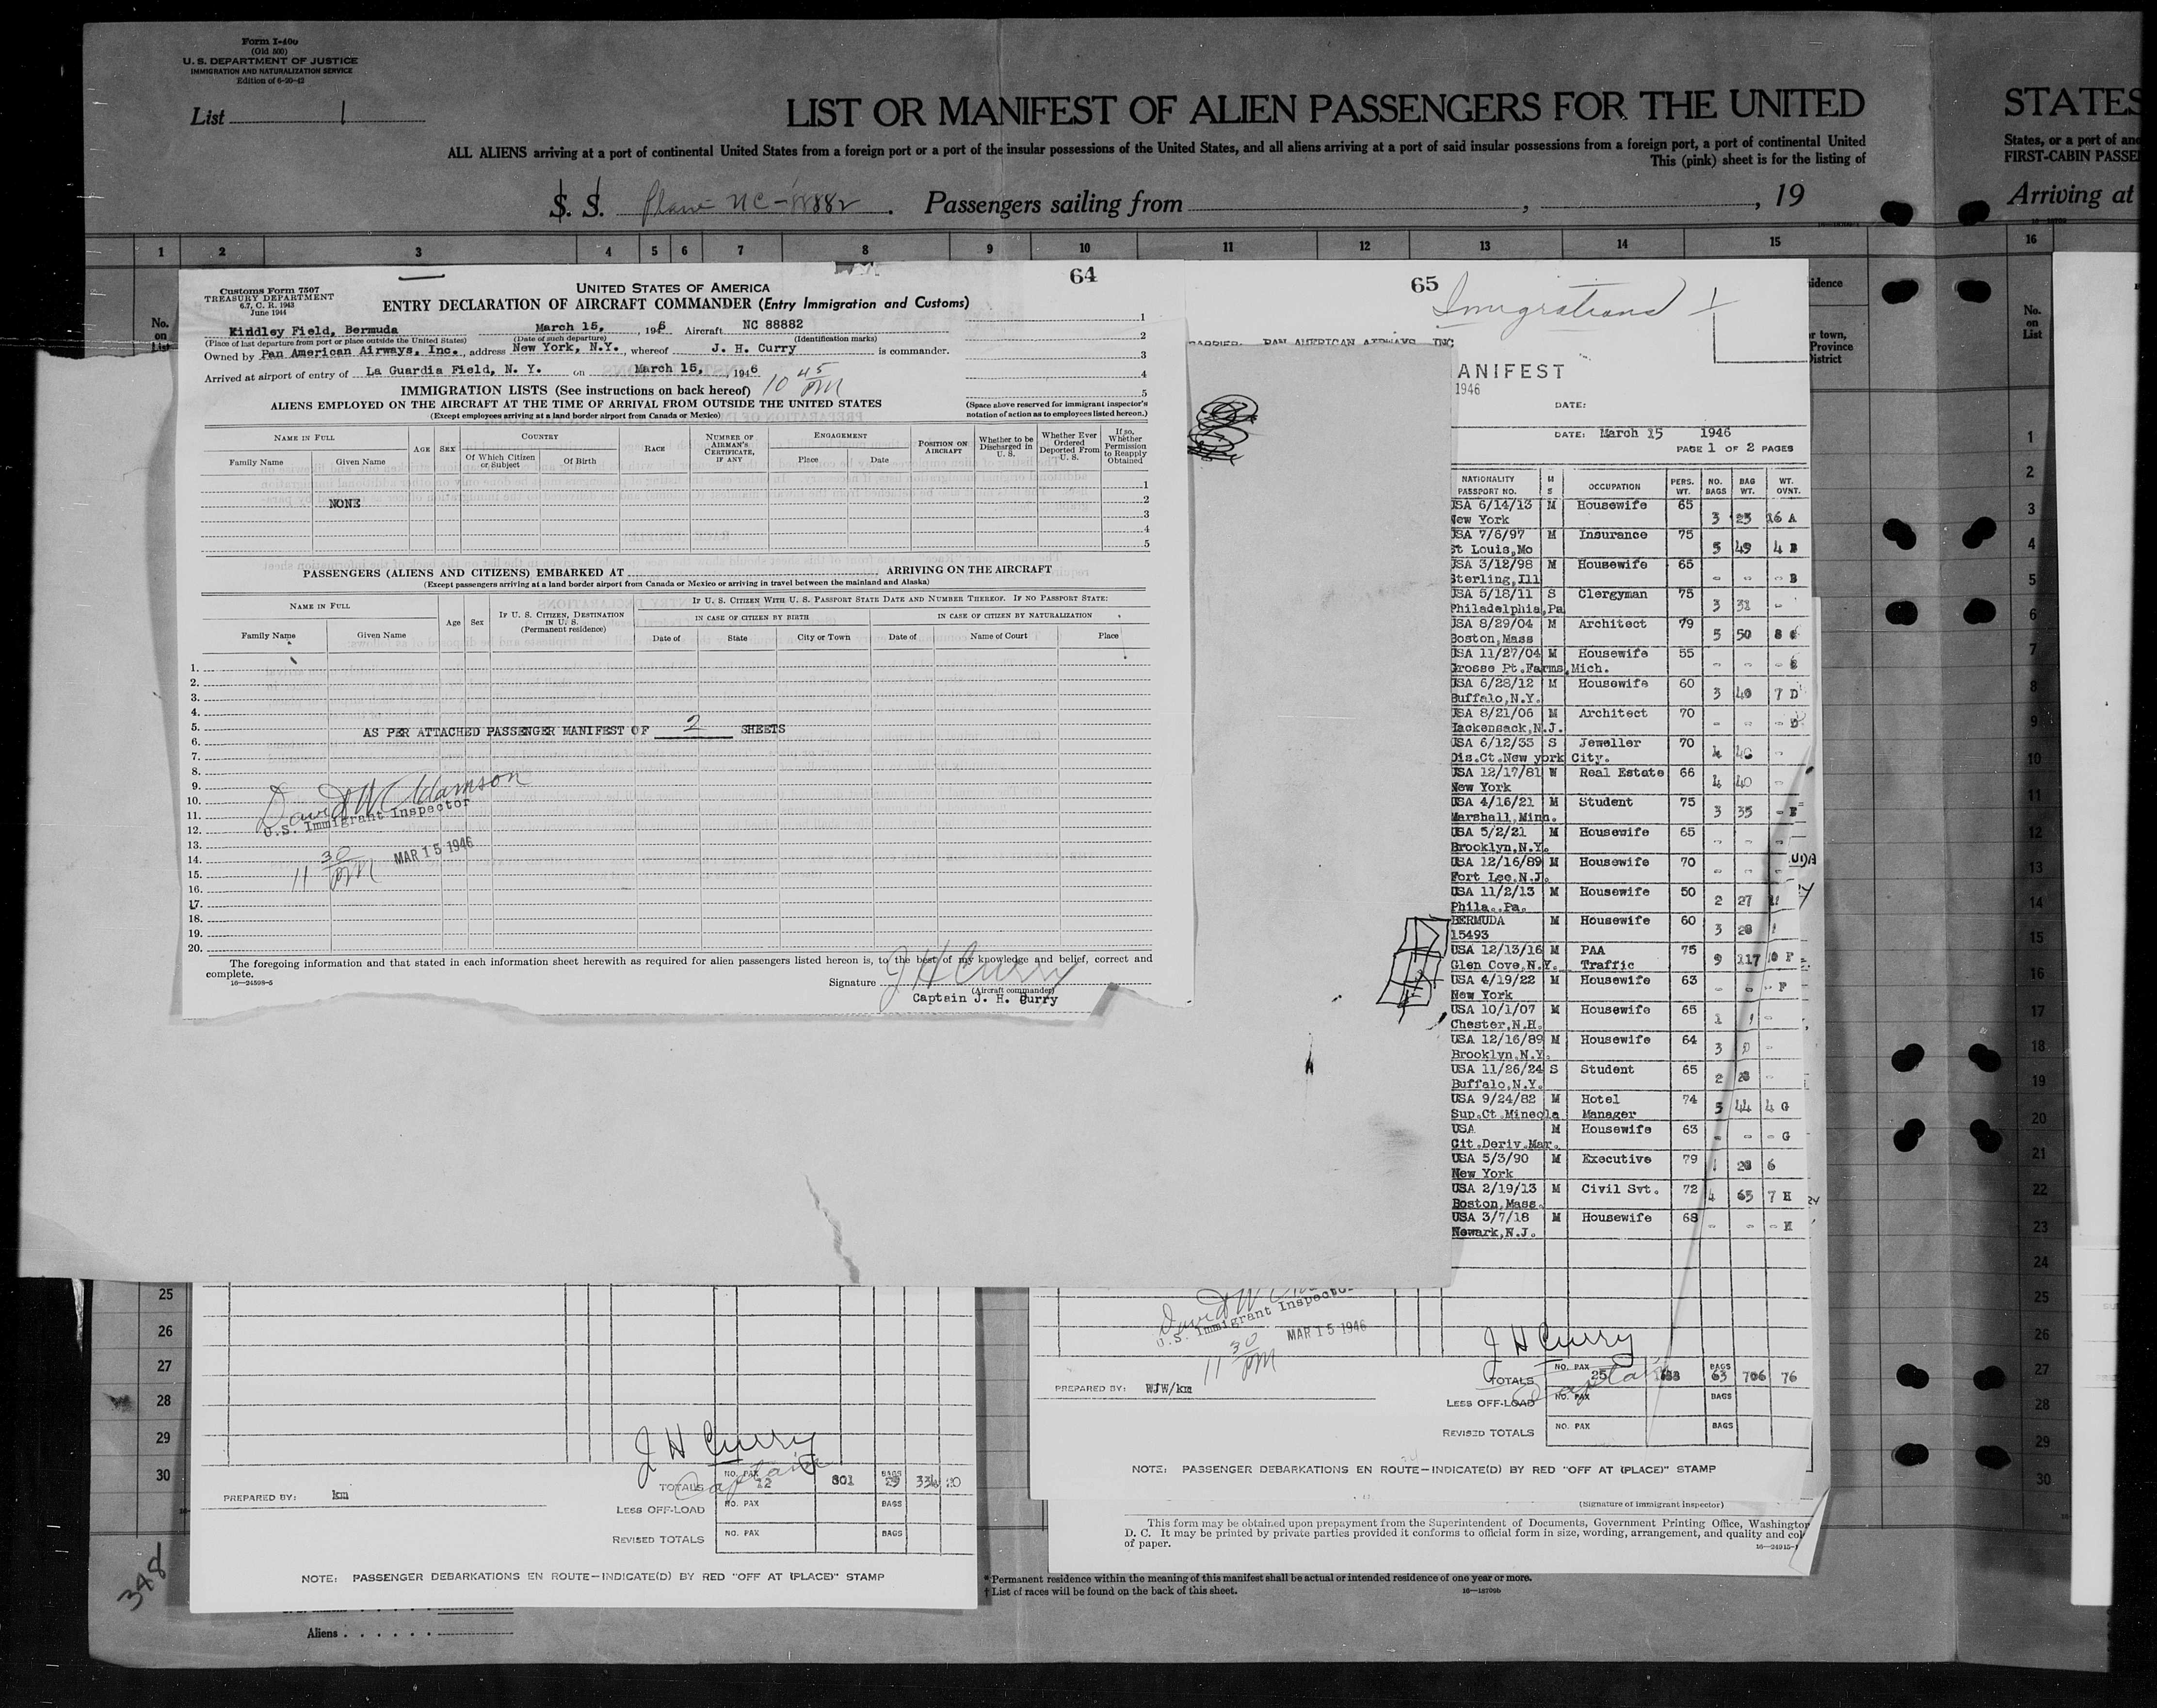 Form I-400
(Old 500)
U. S. DEPARTMENT OF JUSTICE
IMMIGRATION AND NATURALIZATION SERVICE
Edition of 6-20-42
List 1
LIST OR MANIFEST OF ALIEN PASSENGERS FOR THE UNITED
STATES
ALL ALIENS arriving at a port of continental United States from a foreign port or a port of the insular possessions of the United States, and all aliens arriving at a port of said insular possessions from a foreign port, a port of continental United
This (pink) sheet is for the listing of
States, or a port of
FIRST-CABIN
S. S. Plane NC-88882. Passengers sailing from , , 19
Arriving at
1 2 3 4 5 6 7 8 9 10 11 12 13 14 15 16
No. on List
64
Customs Form 7507
TREASURY DEPARTMENT
6.7, C. R. 1943
June 1944
UNITED STATES OF AMERICA
ENTRY DECLARATION OF AIRCRAFT COMMANDER (Entry Immigration and Customs)
Kindley Field, Bermuda March 15, 1946 Aircraft NC 88882
(Place of last departure from port or place outside the United States) (Date of such departure) (Identification marks)
Owned by Pan American Airways, Inc., address New York, N.Y., whereof J. H. Curry is commander.
Arrived at airport of entry of La Guardia Field, N. Y. on March 15, 1946
10 45 PM
IMMIGRATION LISTS (See instructions on back hereof)
ALIENS EMPLOYED ON THE AIRCRAFT AT THE TIME OF ARRIVAL FROM OUTSIDE THE UNITED STATES
(Except employees arriving at a land border airport from Canada or Mexico)
1
2
3
4
5
(Space above reserved for immigrant inspector's
notation of action as to employees listed hereon.)
NAME IN FULL
Family Name Given Name
AGE SEX
COUNTRY
Of Which Citizen or Subject Of Birth
RACE
NUMBER OF AIRMAN'S CERTIFICATE, IF ANY
ENGAGEMENT
Place Date
POSITION ON AIRCRAFT
Whether to be Discharged in U. S.
Whether Ever Ordered Deported From U. S.
If so, Whether Permission to Reapply Obtained
NONE
1
2
3
4
5
PASSENGERS (ALIENS AND CITIZENS) EMBARKED AT ARRIVING ON THE AIRCRAFT
(Except passengers arriving at a land border airport from Canada or Mexico or arriving in travel between the mainland and Alaska)
NAME IN FULL
Family Name Given Name
Age Sex
IF U. S. CITIZEN, DESTINATION IN U. S.
(Permanent residence)
IF U. S. CITIZEN WITH U. S. PASSPORT STATE DATE AND NUMBER THEREOF. IF NO PASSPORT STATE:
IN CASE OF CITIZEN BY BIRTH IN CASE OF CITIZEN BY NATURALIZATION
Date of State City or Town Date of Name of Court Place
1.
2.
3.
4.
5.
AS PER ATTACHED PASSENGER MANIFEST OF 2 SHEETS
6.
7.
8.
9.
10.
11.
12.
13.
14.
15.
16.
17.
18.
19.
20.
David W Adamson
U.S. Immigrant Inspector
11 30 PM MAR 15 1946
The foregoing information and that stated in each information sheet herewith as required for alien passengers listed hereon is, to the best of my knowledge and belief, correct and
complete.
16—24598-5
Signature J H Curry
(Aircraft commander)
Captain J. H. Curry
65
Immigrations
CARRIER: PAN AMERICAN AIRWAYS INC
ANIFEST
1946
DATE:
DATE: March 15 1946
PAGE 1 OF 2 PAGES
NATIONALITY PASSPORT NO. M S OCCUPATION PERS. WT. NO. BAGS BAG WT. WT. OVNT.
USA 6/14/13 M Housewife 65
New York 3 23 16 A
USA 7/6/97 M Insurance 75
St Louis,Mo 5 49 4 B
USA 3/12/98 M Housewife 65
Sterling,Ill - - - B
USA 5/18/11 S Clergyman 75
Philadelphia,Pa 3 32 -
USA 8/29/04 M Architect 79
Boston,Mass 5 50 8
USA 11/27/04 M Housewife 55
Grosse Pt.Farms,Mich. - - -
USA 6/28/12 M Housewife 60
Buffalo,N.Y. 3 40 7 D
USA 8/21/06 M Architect 70
Hackensack,N.J. - - - D
USA 6/12/33 S Jeweller 70
Dis.Ct.New york City. 4 40 -
USA 12/17/81 W Real Estate 66
New York 4 40 -
USA 4/16/21 M Student 75
Marshall,Minn. 3 35 - E
USA 5/2/21 M Housewife 65
Brooklyn,N.Y. - - -
USA 12/16/89 M Housewife 70
Fort Lee,N.J. - - -
USA 11/2/13 M Housewife 50
Phila.,Pa. 2 27
BERMUDA M Housewife 60
15493 3 28
USA 12/13/16 M PAA 75
Glen Cove,N.Y. Traffic 9 117 10 F
USA 4/19/22 M Housewife 63
New York - - - F
USA 10/1/07 M Housewife 65
Chester,N.H. 1
USA 12/16/89 M Housewife 64
Brooklyn,N.Y. 3
USA 11/26/24 S Student 65
Buffalo,N.Y. 2 28 -
USA 9/24/82 M Hotel 74
Sup.Ct.Mineola Manager 5 44 4 G
USA M Housewife 63
Cit.Deriv.Mar. - - - G
USA 5/3/90 M Executive 79
New York 1 28 6
USA 2/19/13 M Civil Svt. 72
Boston,Mass. 4 65 7 H
USA 3/7/18 M Housewife 68
Newark,N.J. - - - H
David W
U.S. Immigrant Inspector
11 30 PM MAR 15 1946
J H Curry
Captain
PREPARED BY: WJW/km
TOTALS NO. PAX 25 BAGS 63 706 76
LESS OFF-LOAD NO. PAX BAGS
REVISED TOTALS NO. PAX BAGS
NOTE: PASSENGER DEBARKATIONS EN ROUTE—INDICATE(D) BY RED "OFF AT (PLACE)" STAMP
(Signature of immigrant inspector)
This form may be obtained upon prepayment from the Superintendent of Documents, Government Printing Office, Washington
D. C. It may be printed by private parties provided it conforms to official form in size, wording, arrangement, and quality and
of paper.
16—24915-1
J H Curry
Captain
PREPARED BY: km
TOTALS NO. PAX 12 801 BAGS 29 334 20
LESS OFF-LOAD NO. PAX BAGS
REVISED TOTALS NO. PAX BAGS
NOTE: PASSENGER DEBARKATIONS EN ROUTE—INDICATE(D) BY RED "OFF AT (PLACE)" STAMP
* Permanent residence within the meaning of this manifest shall be actual or intended residence of one year or more.
† List of races will be found on the back of this sheet.
16—18709b
348
Aliens
25
26
27
28
29
30
No. on List
1
2
3
4
5
6
7
8
9
10
11
12
13
14
15
16
17
18
19
20
21
22
23
24
25
26
27
28
29
30